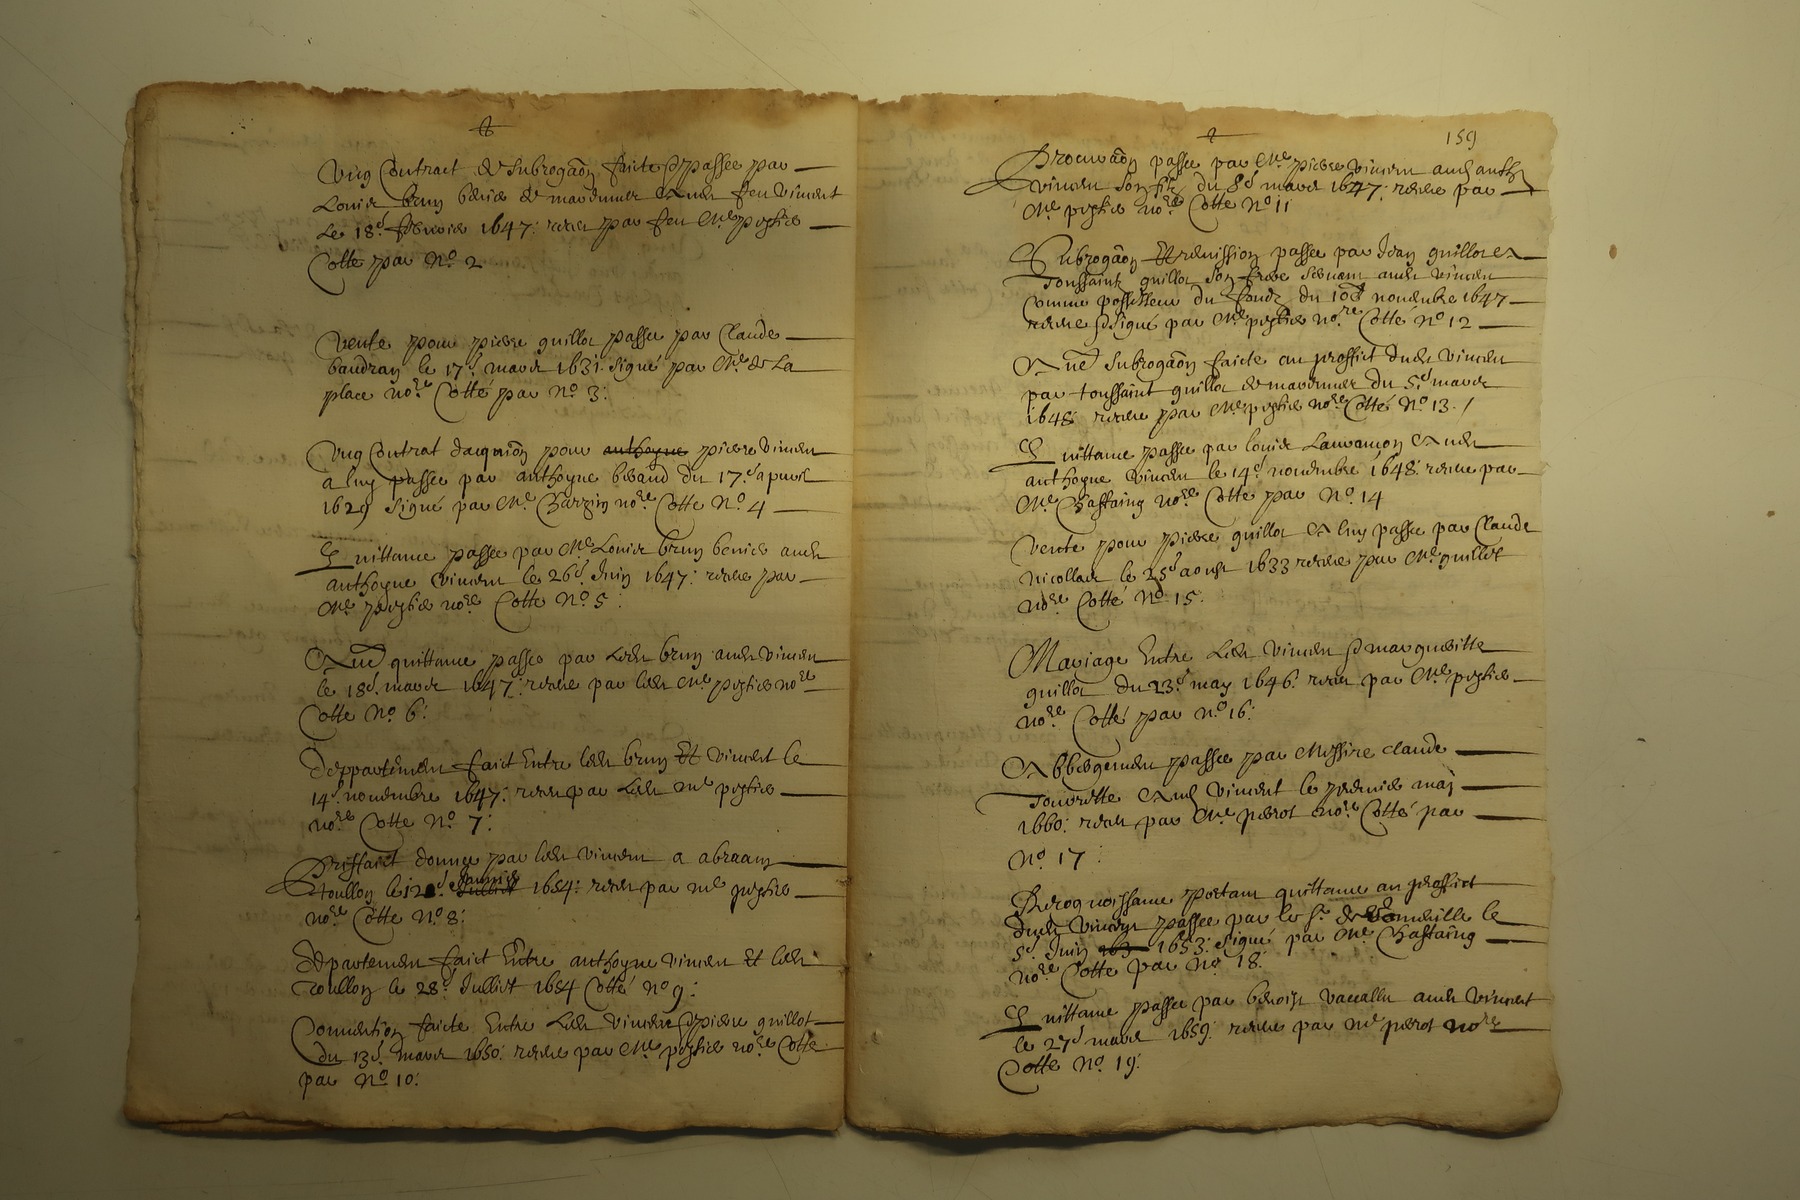 Ung Contract de Subrogaõn faicte & passee par
Louis brun benier de mandement Audit feu Vincent
Le 18e febvrier 1647: receu par feu Me pughier
Cotte par No 2
Vente pour pierre guillot passee par Claude
baudran le 17e mars 1631. Signé par Me de La
place nore Cotté par No 3:
Ung Contrat dacquiõn pour anthoyne pierre Vincent
a luy passee par anthoyne beraud du 17e apvril
1629 Signé par Me nore Cotte No 4
Quittance passee par Me Louis brun benier audit
anthoyne Vincent le 26e Juin 1647: receue par
Me pughier nore Cotte No 5:
Aue quittance passee par Ledit brun audit Vincent
le 18e mars 1647: receue par ledit Me pughier nore
Cotte No 6:
Deppartement faict Entre ledit brun Et Vincent le
14e novembre 1647: receu par Ledit me pughier
nore Cotte No 7:
Priffaict donnee par ledit Vincent a abraam
toullon le 12e Juillet 1654: receu par me pughier
nore Cotte No 8:
Departement faict Entre anthoyne Vincent Et ledit
toullon le 28e Julliet 1654 Cotté no 9:
Convention faicte Entre Ledit Vincent & pierre guillot
du 13e mars 1650: receue par Me pughier nore Cotte
par No 10:
159
Procuraõn passee par Me pierre Vincent aud anth
Vincent Son filz du 8e mars 1647: receue par
Me pughier nore Cotte No 11
Subrogaõn Et remission passee par Jean guillot A
Toussaint guillot Son frere Servant audit Vincent
Comme possesseur du fondz du 10e novembre 1647
receue & Signé par Me pughier nore Cotté No 12
Aue Subrogaõn faicte au proffict dudit Vincent
par toussaint guillot de mandement du 5e mars
1648: receue par Me pughier nore Cotté No 13.
Quittance passee par louis Audit
anthoyne Vincent le 14e novembre 1648: receue par
Me Chastaing nore Cotte par No 14
Vente pour pierre guillot A luy passee par Claude
nicollas le 25e aoust 1633 receue par Me guillot
nore Cotté No 15:
Mariage Entre Ledit Vincent & margueritte
guillot du 23e may 1646: receu par Me pughier
nore Cotté par no 16:
Abbergement passee par Messire Claude
Audt Vincent le premier maj
1660: receu par Me pierrot nore Cotté par
No 17:
Recognoissance portant quittance au proffict
dudit Vincent passee par le Sr de le
5e Juin 163 1653: Signé par Me Chastaing
nore Cotte par No 18:
Quittance passee par benoist audit Vincent
le 27e mars 1659: receue par me pierrot nore
Cotte No 19: